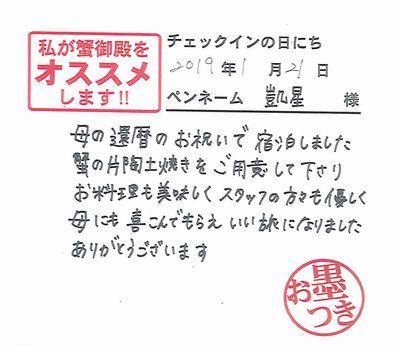 私が蟹御殿を
オススメ
します!!
チェックインの日にち
2019年1月21日
ペンネーム 凱星 様
母の還暦のお祝いで宿泊しました
蟹の片陶土焼きをご用意して下さり
お料理も美味しくスタッフの方々も優しく
母にも喜こんでもらえいい旅になりました
ありがとうございます
お墨つき